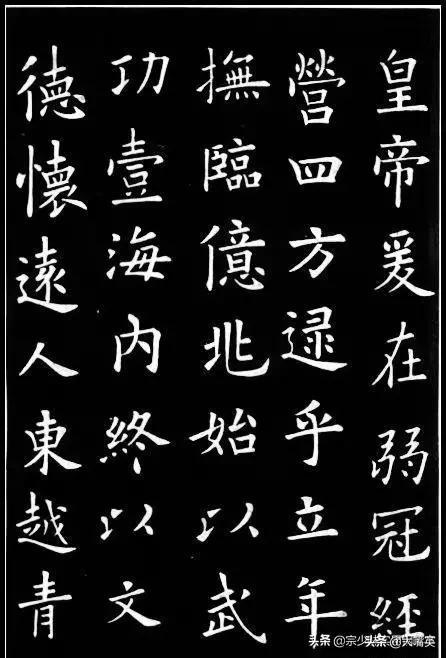 皇帝爰在弱冠經
營四方逮乎立年
撫臨億兆始以武
功壹海內終以文
德懷遠人東越青
头条@宗少
头条@大嘴英